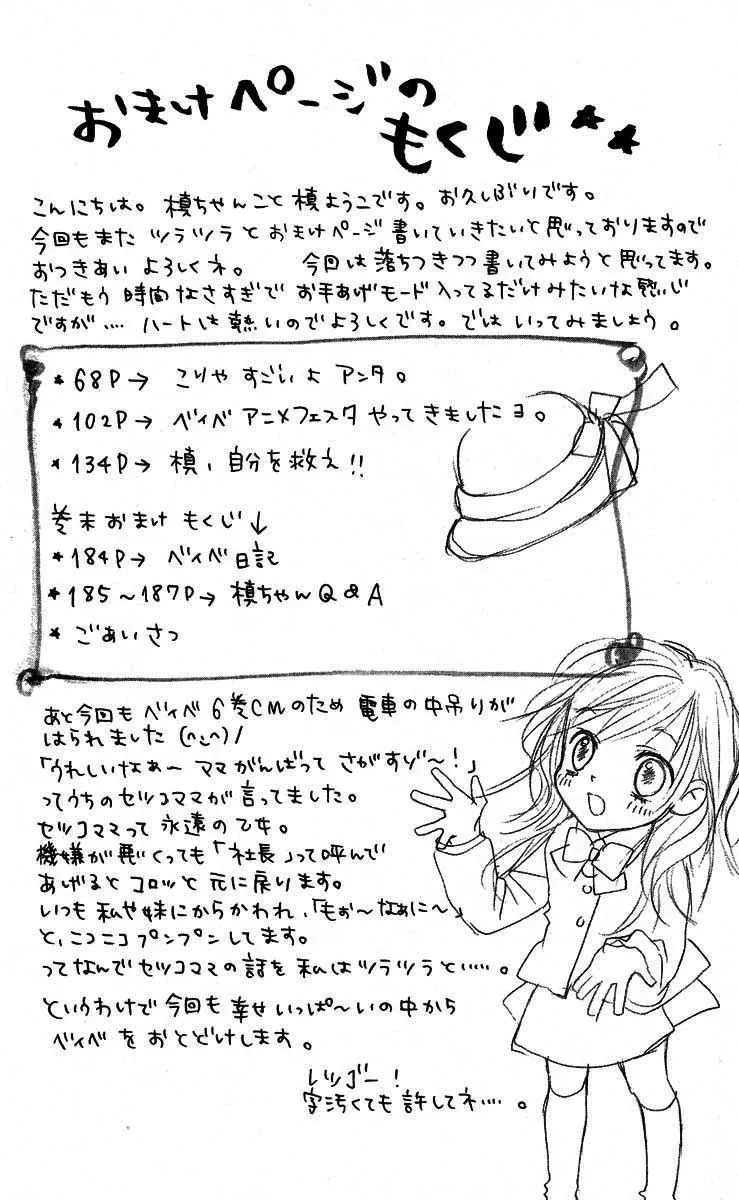 おまけページの
もくじ★★
こんにちは。 槙ちゃんこと 槙ようこです。お久しぶりです。
今回もまた ツラツラと おまけページ 書いていきたいと思っておりますので
おつきあい よろしくネ。 今回は落ちつきつつ書いてみようと思ってます。
ただもう 時間なさすぎで お手あげモード入ってるだけみたいな感じ
ですが‥‥ ハートは熱いのでよろしくです。では いってみましょう。
★68P→ こりゃ すごいよ アンタ。
★102P→ ベイベ アニメフェスタ やってきましたヨ。
★134P→ 槙、自分を救え!!
巻末おまけ もくじ↓
★184P→ ベイベ日記
★185～187P→ 槙ちゃんQ&A
★ごあいさつ
あと今回も ベイベ 6巻CMのため 電車の中吊りが
はられました (^_^)/
「うれしいなぁ～ ママがんばって さがすゾ～!」
ってうちのセツコママが言ってました。
セツコママって 永遠の乙女。
機嫌が悪くっても「社長」って呼んで
あげるとコロッと 元に戻ります。
いつも私や妹にからかわれ、「もぉ～なぁに～」
と、ニコニコ プンプンしてます。
ってなんでセツコママの話を私はツラツラと‥‥。
というわけで今回も 幸せいっぱ～いの中から
ベイベを おとどけします。
レッツゴー!
字汚くても許してネ‥‥。